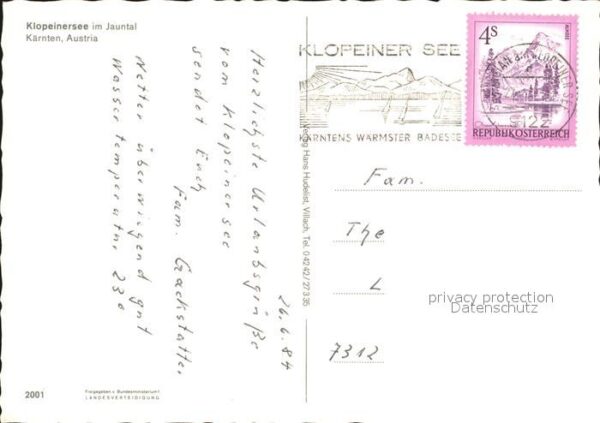 Klopeinersee im Jauntal
Kärnten, Austria
26.6.84
Herzlichste Urlaubsgrüße
vom Klopeinersee
sendet Euch
Fam. Gackstatter
Wetter überwiegend gut
Wassertemperatur 23°
2001
Freigegeben v. Bundesministerium f.
LANDESVERTEIDIGUNG
Verlag Hans Hudelist, Villach, Tel. 04242/27335
KLOPEINER SEE
KÄRNTENS WÄRMSTER BADESEE
KLOPEINER SEE
9122
4S
REPUBLIK ÖSTERREICH
Fam.
The
L
7312
privacy protection
Datenschutz